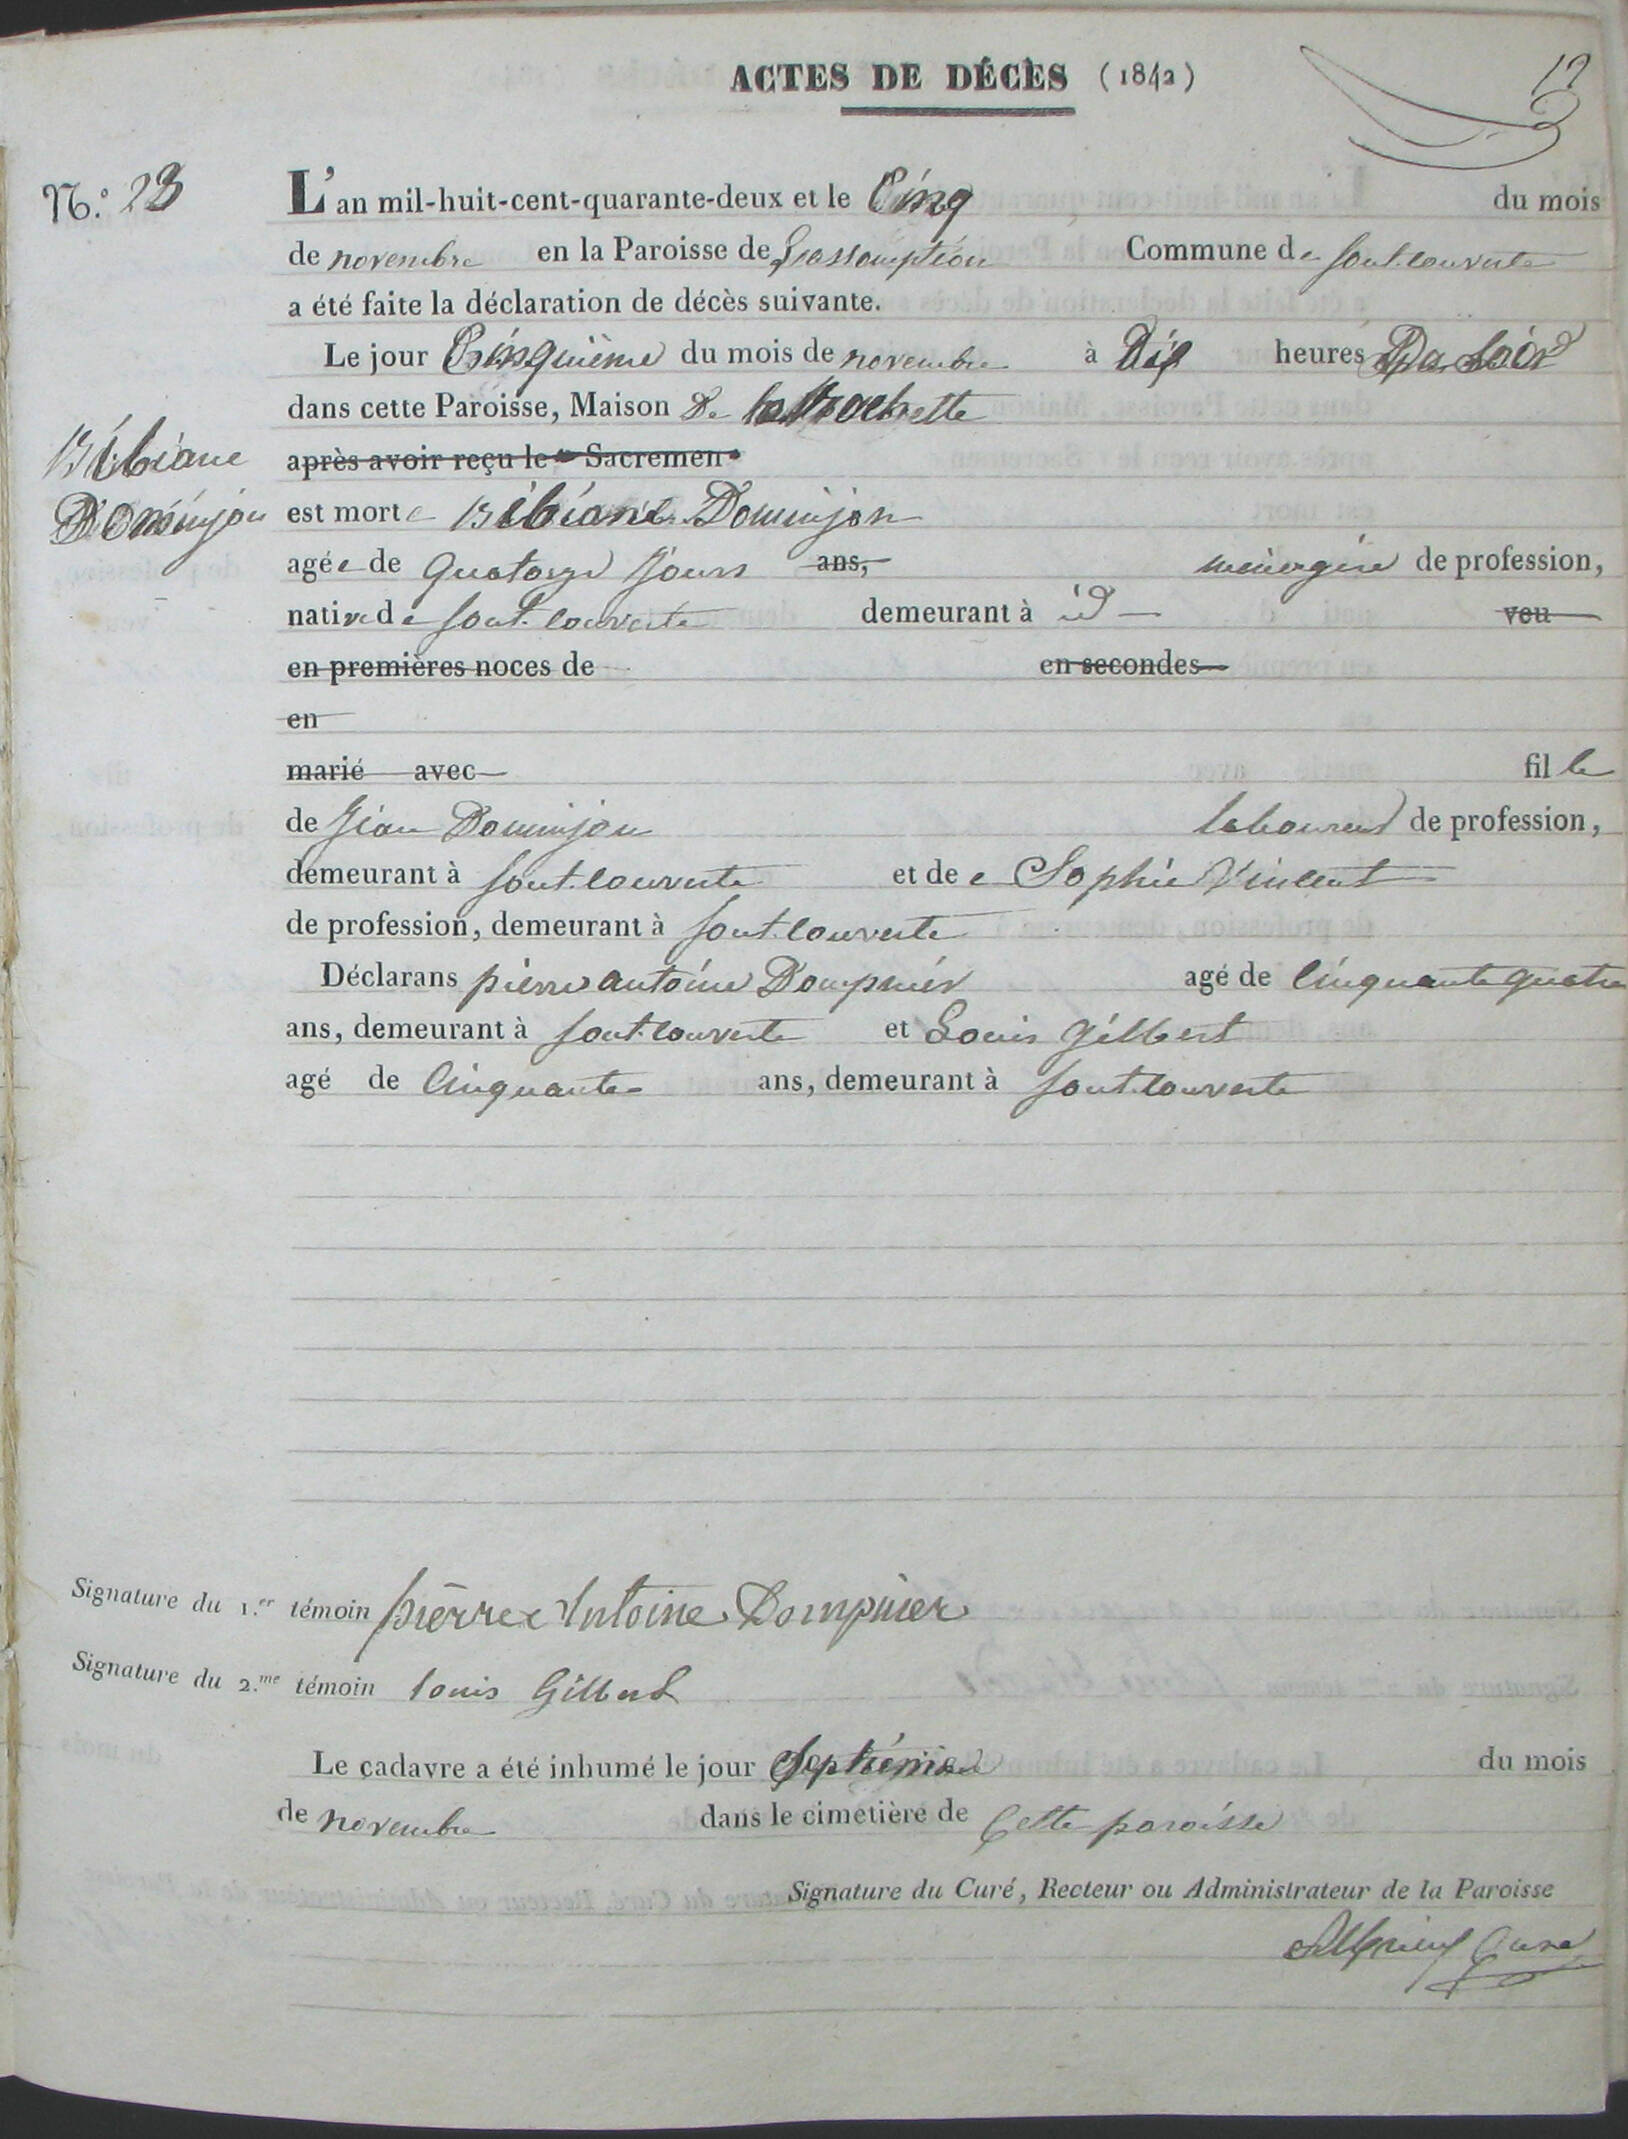 ACTES DE DÉCÈS (1842)
12
N.° 23
L'an mil-huit-cent-quarante-deux et le Cinq du mois
de novembre en la Paroisse de Commune de font-couverte
a été faite la déclaration de décès suivante.
Le jour Cinquième du mois de novembre à Dix heures Du Soir
dans cette Paroisse, Maison De la Rochette
Bibiane
Dominjon
après avoir reçu le Sacremen
est morte Bibiane Dominjon
agée de Quatorze Jours ans, ménagère de profession,
native de font-couverte demeurant à id veu
en premières noces de en secondes
en
marié avec fille
de Jean Dominjon laboureur de profession,
demeurant à font-couverte et de Sophie Vincent
de profession, demeurant à font-couverte
Déclarans pierre antoine Dompnier agé de Cinquante quatre
ans, demeurant à font-couverte et Louis Gilbert
agé de Cinquante ans, demeurant à font-couverte
Signature du 1.er témoin pierre Antoine Dompnier
Signature du 2.me témoin Louis Gilbert
Le cadavre a été inhumé le jour Septième du mois
de novembre dans le cimetière de Cette paroisse
Signature du Curé, Recteur ou Administrateur de la Paroisse
Curé